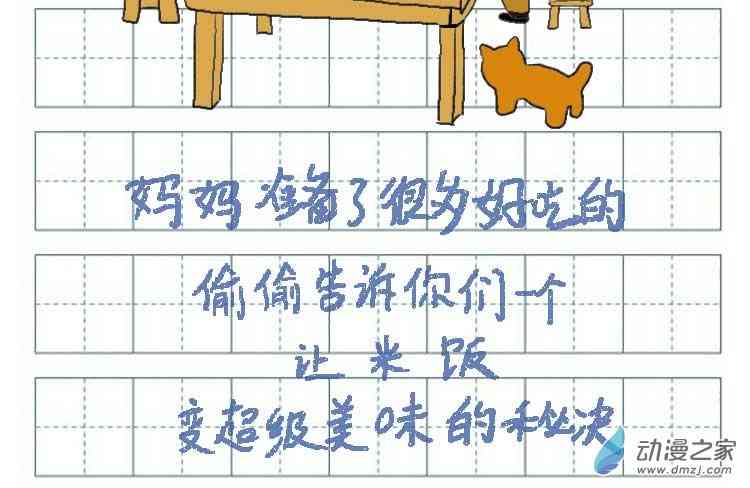 妈妈准备了很多好吃的
偷偷告诉你们一个
让米饭
变超级美味的秘决
动漫之家
www.dmzj.com